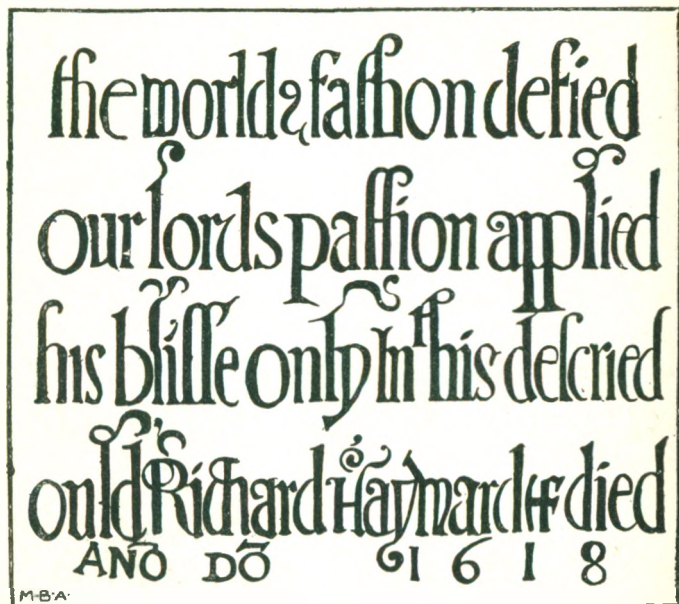 the worldꝭ faſhion defied
our lords paſſion applied
his bliſſe only In this deſcried
ould Richard Hayward died
ANŌ DŌ 1618
M·B·A·